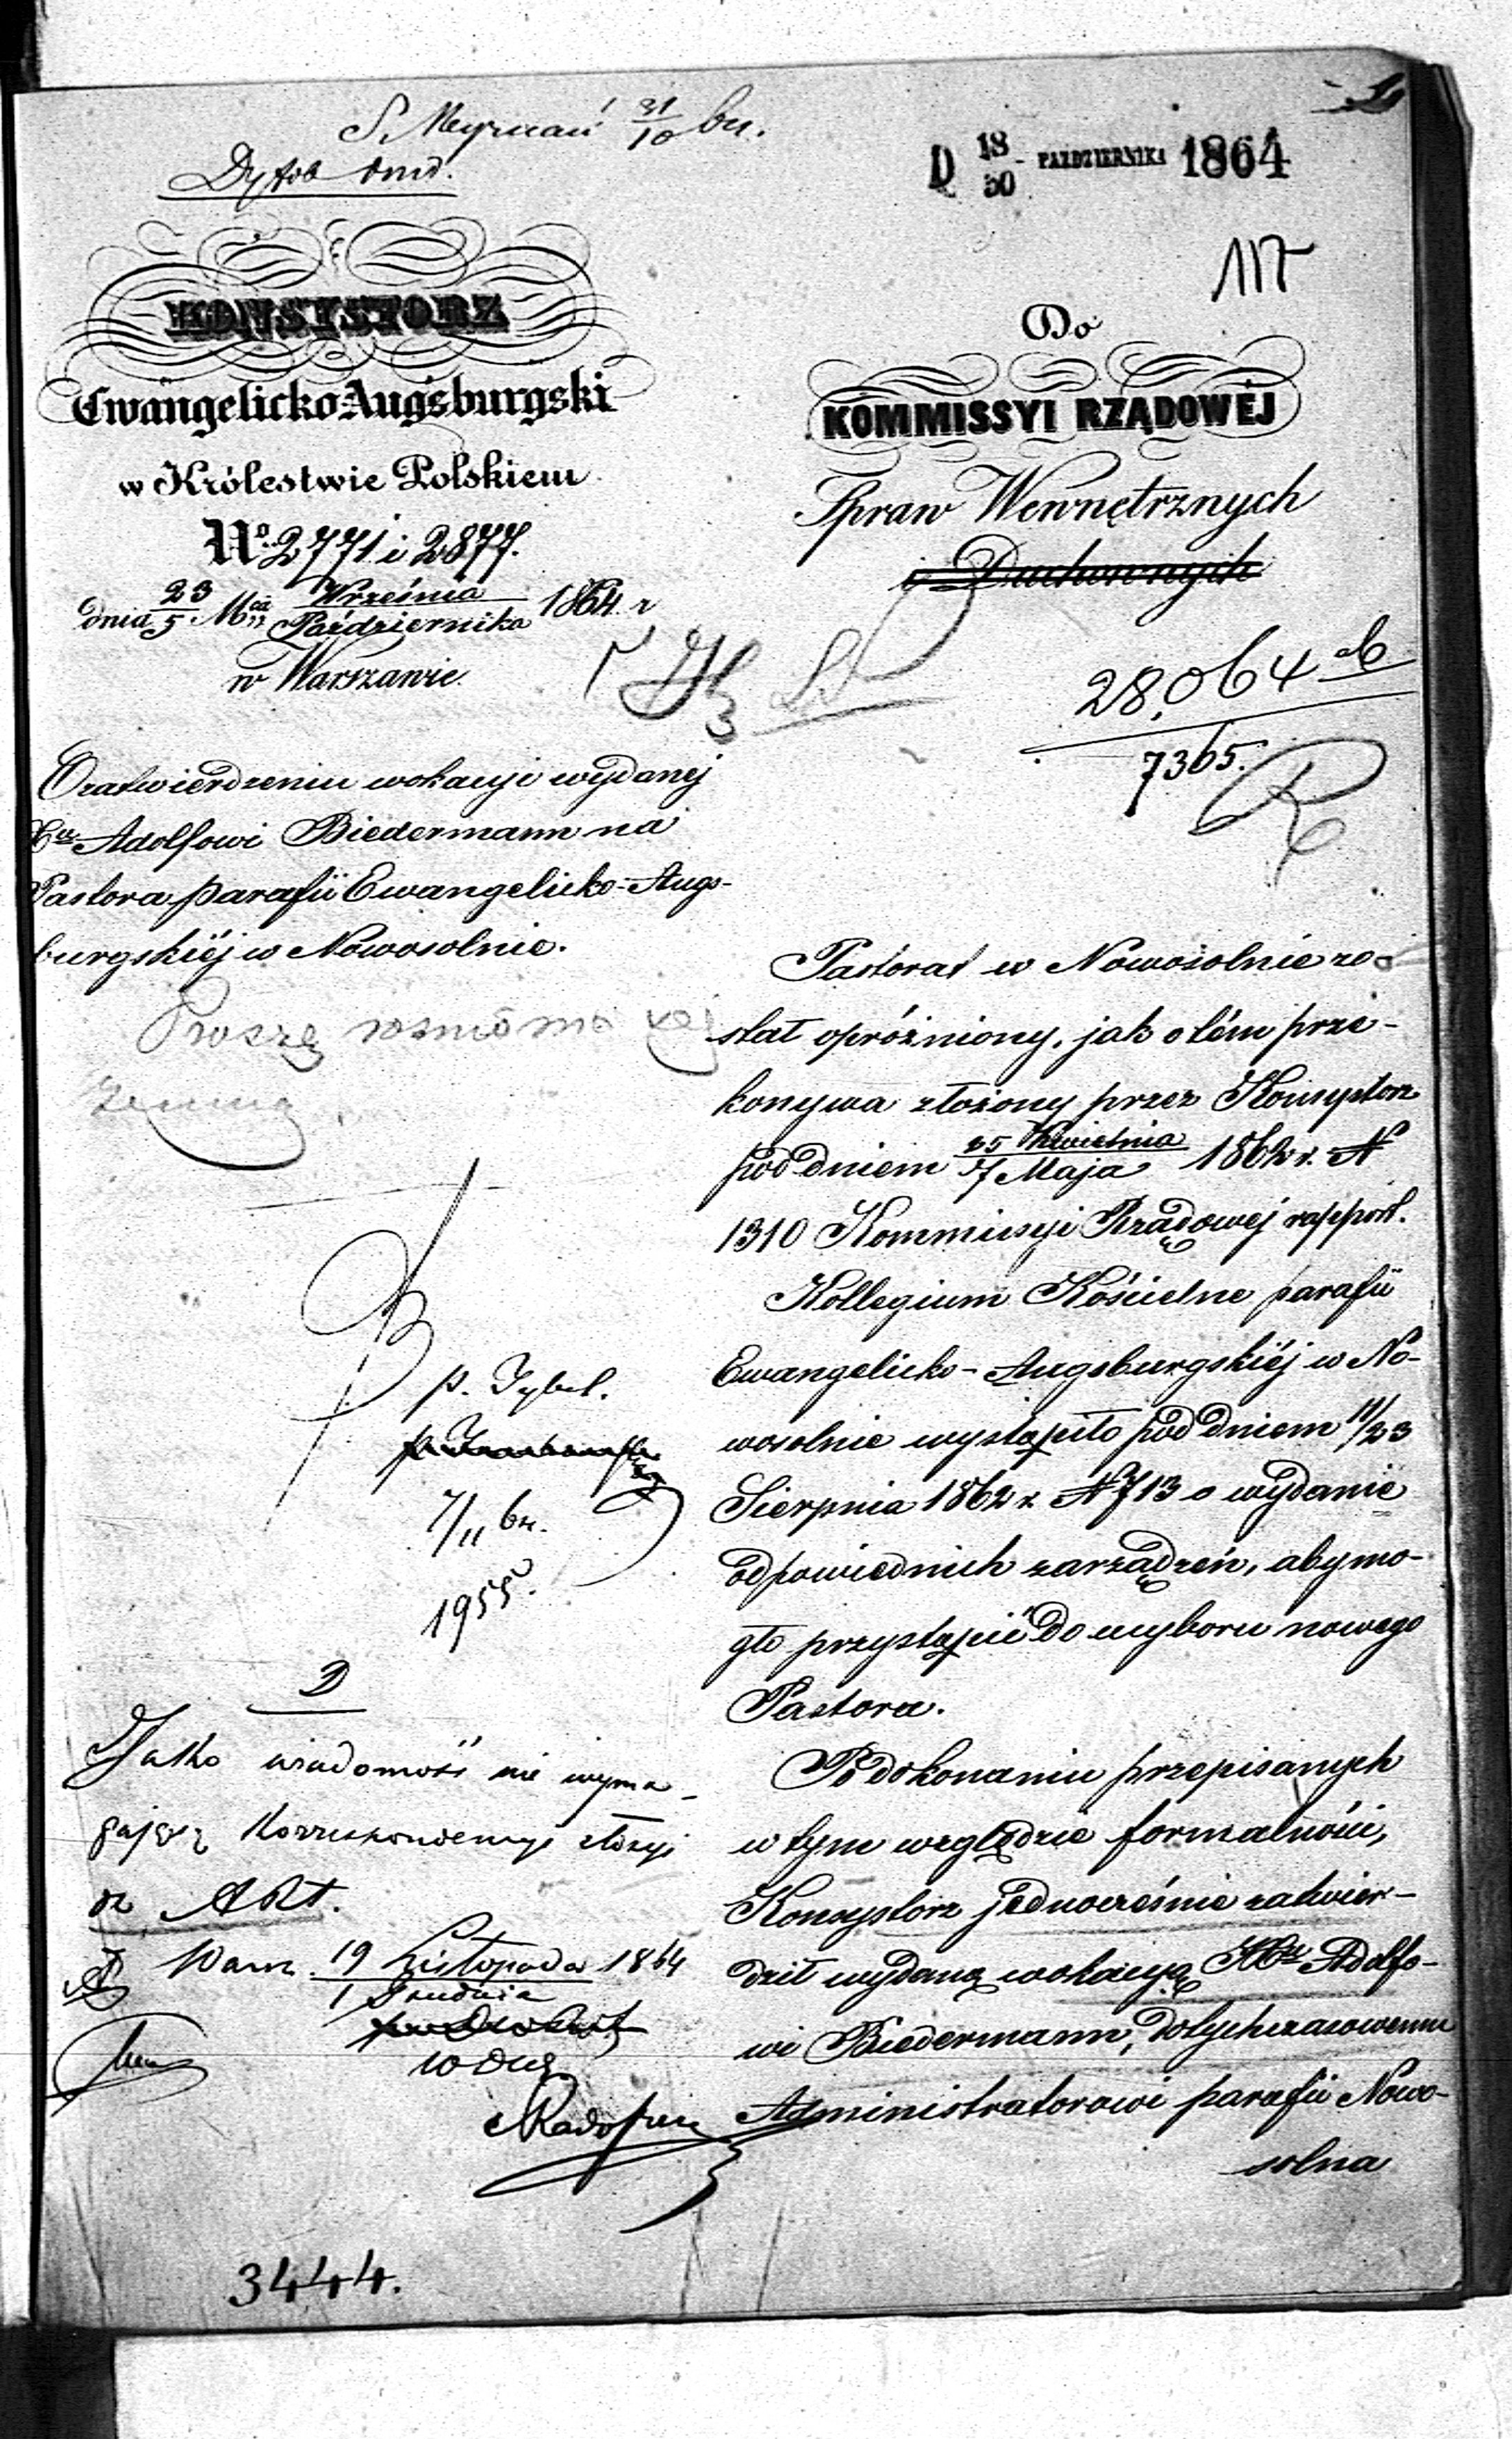 31/10 br.
D 18/30 PAŹDZIERNIKA 1864
117
KONSYSTORZ
Ewangelicko-Augsburgski
w Królestwie Polskiem
No. 2771 i 2877.
dnia 23/5 Mca Września/Października 1864 r
w Warszawie.
Do
KOMMISSYI RZĄDOWÉJ
Spraw Wewnętrznych
i Duchownych
28,064
7365.
O zatwierdzeniu wokacyi wydanej
Adolfowi Biedermann na
Pastora parafii Ewangelicko-Augs-
burgskiéj w Nowosolnie.
Proszę
Pastorat w Nowosolnie zo-
stał opróżniony, jak o tém prze-
konywa złożony przez Konsystorz
pod dniem 25 Kwietnia/7 Maja 1862 r. N
1310 Kommissyi Rządowej rapport.
Kollegium Kościelne parafii
Ewangelicko-Augsburgskiéj w No-
wosolnie wystąpiło pod dniem 11/23
Sierpnia 1862 r. N 713 o wydanie
odpowiednich zarządzeń, aby mo-
gło przystąpić do wyboru nowego
Pastora.
Po dokonaniu przepisanych
w tym względzie formalności,
Konsystorz jednocześnie zatwier-
dził wydaną wokacyą Xdzu Adolfo-
wi Biedermann, dotychczasowemu
Administratorowi parafii Nowo-
solna
7/11 br.
1955
D
Jako wiadomość nie wyma-
gającą korrespondencyi złożyć
do Akt.
Warsz. 19 Listopada/1 Grudnia 1864
3444.